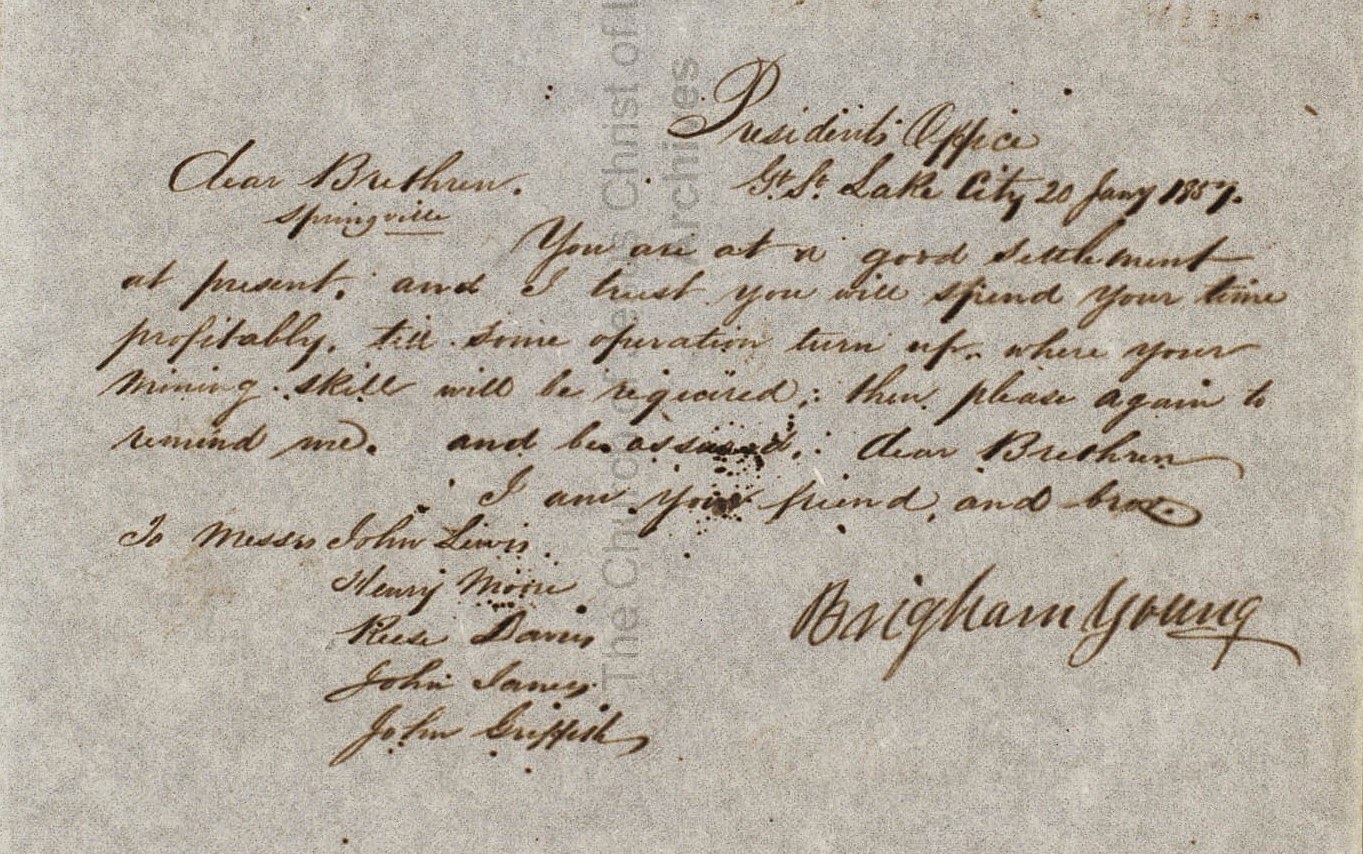 Presidents Office
Gt. St. Lake City 20 Jany 1857.
dear Brethren.
Springville
You are at a good settlement
at present. and I trust you will spend your time
profitably, till some operation turn up. where your
mining skill will be required; then please again to
remind me. and be assured, dear Brethren
I am your friend, and bro.
To Messrs John Lewis.
Henry Moore
Reese Davis
John James
John Griffith
Brigham Young
The Church of Jesus Christ of
Archives